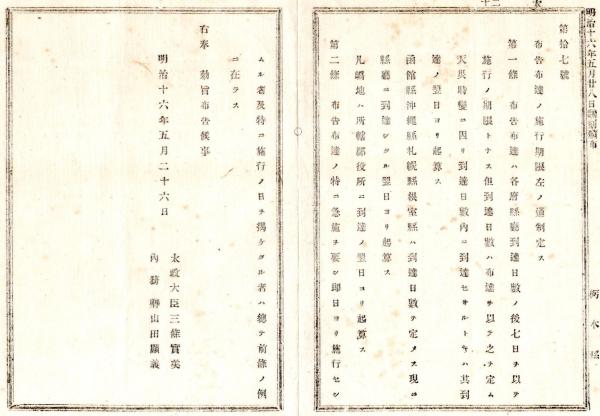 明治十六年五月廿八日
栃木縣
第拾七號
布告布達ノ施行期限左ノ通制定ス
第一條 布告布達ハ各府縣廳到達日數ノ後七日ヲ以テ
施行ノ期限トナス但到達日數ハ布達ヲ以テ之ヲ定ム
天災時變ニ因リ到達日數內ニ到達セサルトキハ其到
達ノ翌日ヨリ起算ス
函館縣沖繩縣札幌縣根室縣ハ到達日數ヲ定メス現ニ
縣廳ニ到達シタル翌日ヨリ起算ス
凡嶋地ハ所轄郡役所ニ到達ノ翌日ヨリ起算ス
第二條 布告布達ノ特ニ急施ヲ要シ即日ヨリ施行セシ
ムル者及特ニ施行ノ日ヲ揭ケタル者ハ總テ前條ノ例
ニ在ラス
右奉 勅旨布告候事
明治十六年五月二十六日
太政大臣三條實美
內務卿山田顯義